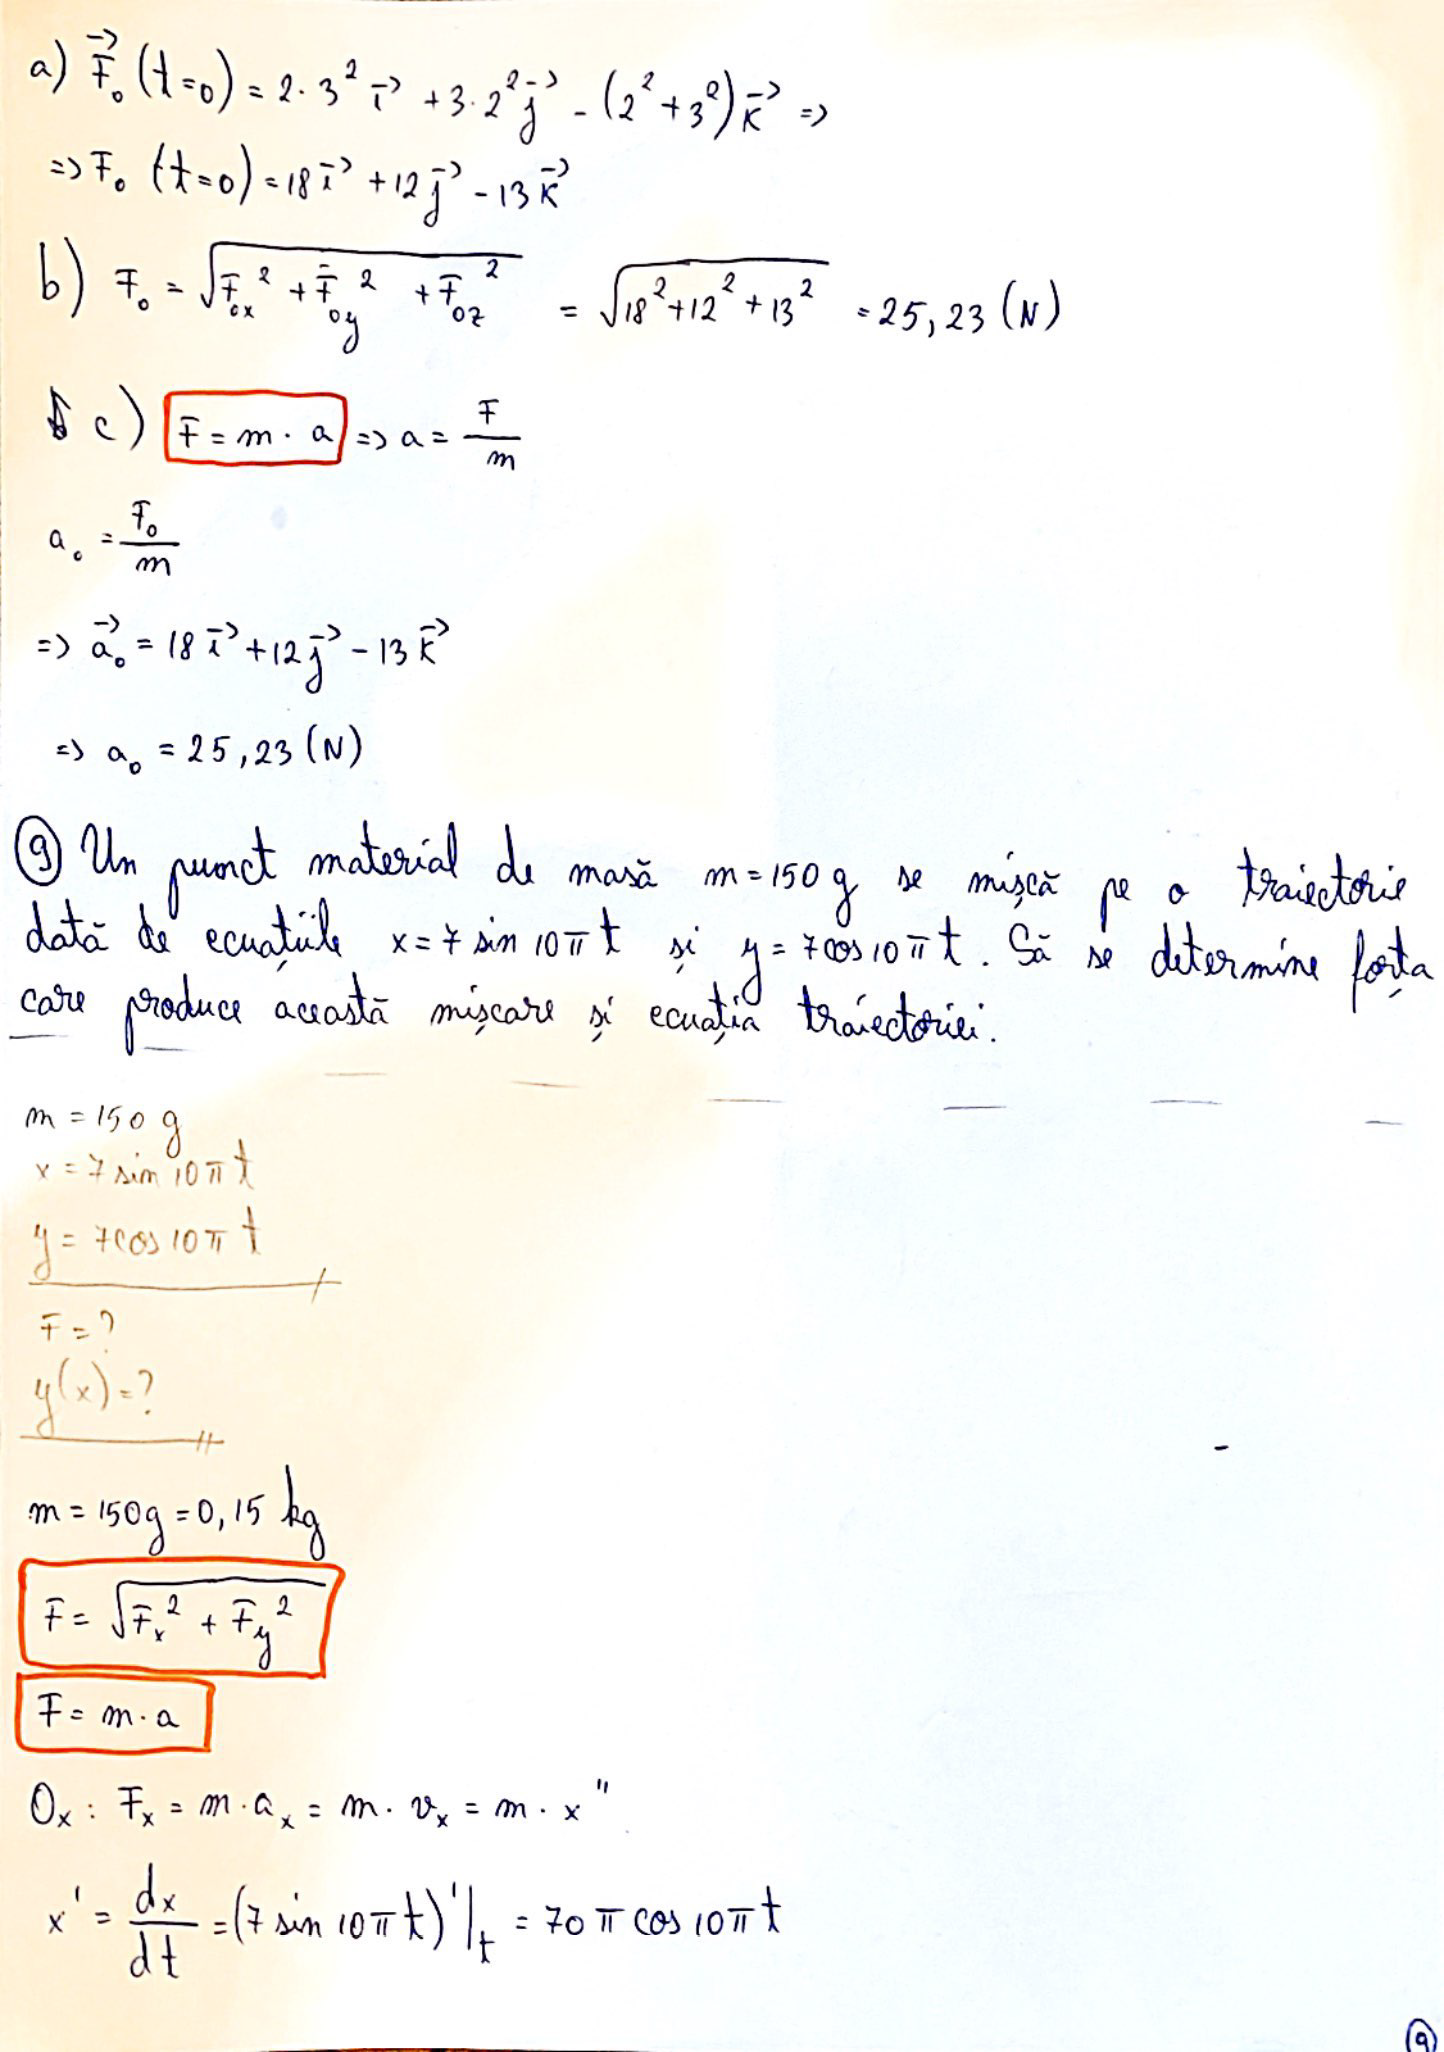 a) F⃗₀ (t=0) = 2·3² i⃗ + 3·2² j⃗ - (2² + 3²) k⃗ =>
=> F₀ (t=0) = 18 i⃗ + 12 j⃗ - 13 k⃗
b) F₀ = √(F₀ₓ² + F₀y² + F₀z²) = √(18² + 12² + 13²) = 25,23 (N)
c) F = m · a => a = F/m
a₀ = F₀/m
=> a⃗₀ = 18 i⃗ + 12 j⃗ - 13 k⃗
=> a₀ = 25,23 (N)
⑨ Un punct material de masă m = 150 g se mișcă pe o traiectorie
dată de ecuațiile x = 7 sin 10π t și y = 7cos 10π t. Să se determine forța
care produce această mișcare și ecuația traiectoriei.
m = 150 g
x = 7 sin 10π t
y = 7cos 10π t
F = ?
y(x) = ?
m = 150g = 0,15 kg
F = √(Fₓ² + Fy²)
F = m · a
Ox : Fₓ = m · aₓ = m · vₓ = m · x''
x' = dx/dt = (7 sin 10π t)'|t = 70 π cos 10π t
⑨